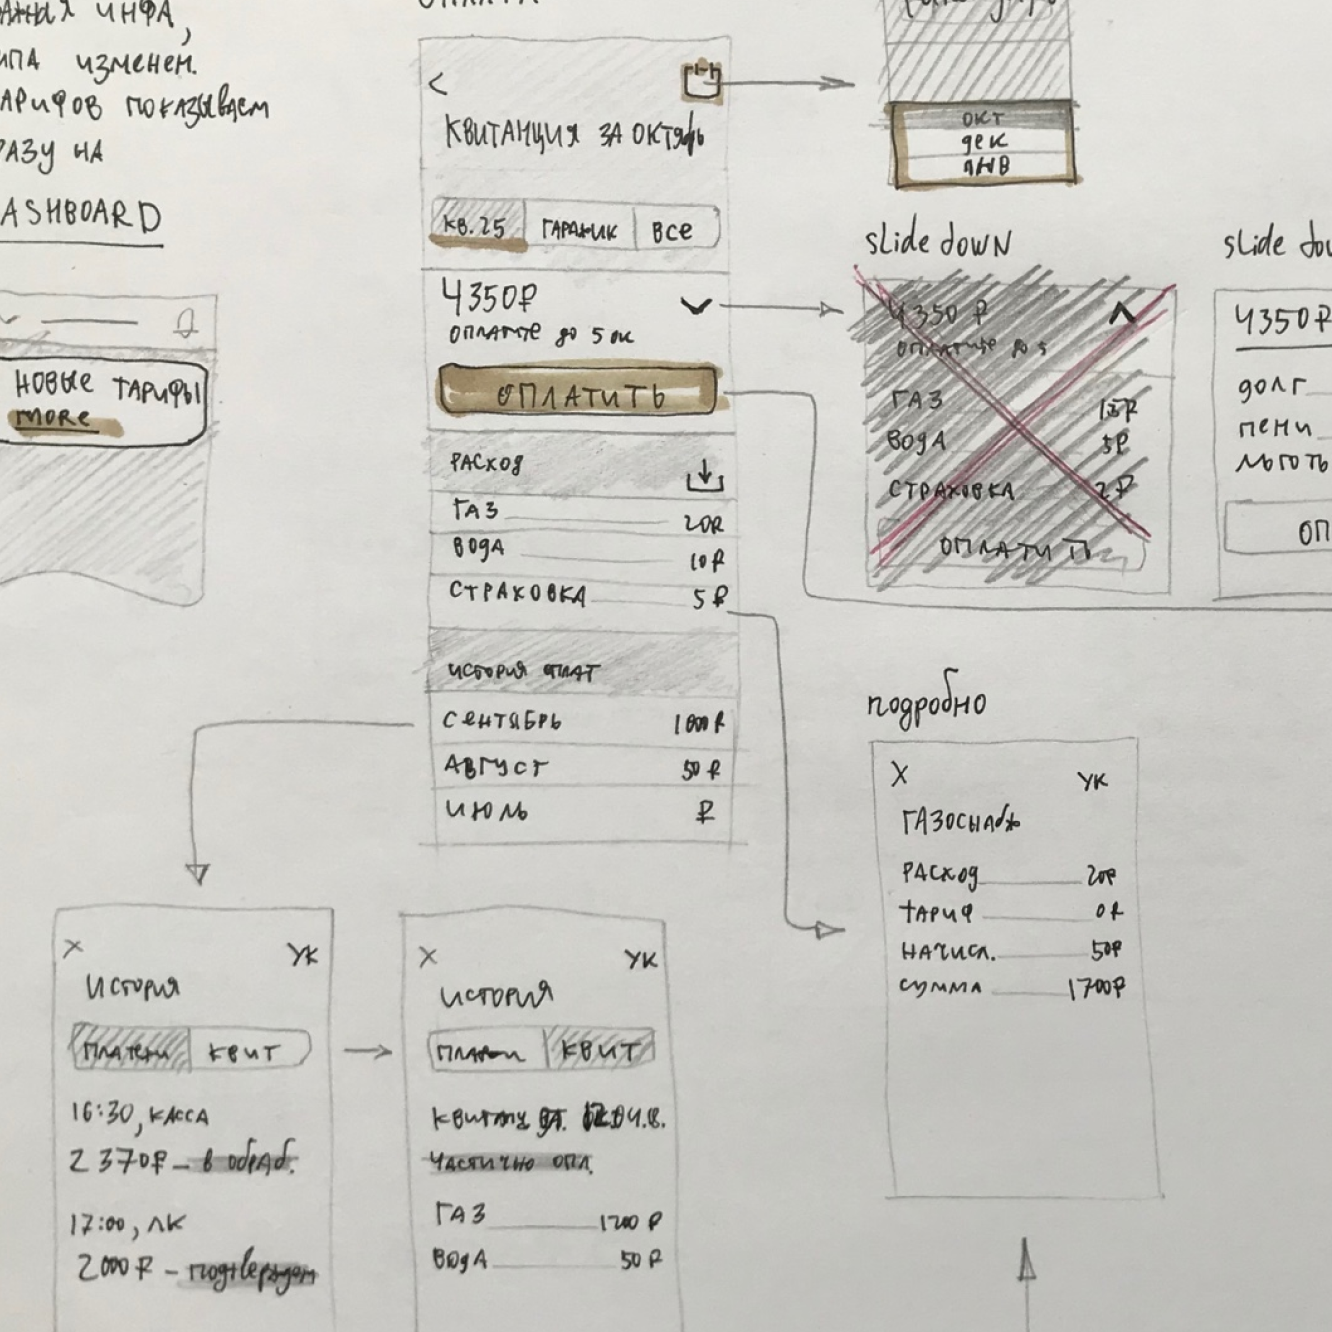 ИНФА,
ИЗМЕНЕН.
ПОКАЗЫВАЕМ
НА
ASHBOARD
НОВЫЕ ТАРИФЫ
MORE
ОПЛАТА
КВИТАНЦИЯ ЗА ОКТЯБРЬ
КВ. 25 ГАРАЖИК ВСЕ
4350₽
ОПЛАТИТЕ ДО 5 ОК
ОПЛАТИТЬ
РАСХОД
ГАЗ 20₽
ВОДА 10₽
СТРАХОВКА 5₽
ИСТОРИЯ ПЛАТ
СЕНТЯБРЬ 1000₽
АВГУСТ 50₽
ИЮЛЬ ₽
ОКТ
ДЕК
ЯНВ
slide down
4350₽
ОПЛАТИТЕ ДО 5
ГАЗ
ВОДА 5₽
СТРАХОВКА 2₽
ОПЛАТИТЬ
slide
4350₽
ДОЛГ
ПЕНИ
ОП
подробно
X УК
ГАЗОСНАБЖ
РАСХОД 20₽
ТАРИФ 0₽
НАЧИСЛ. 50₽
СУММА 1700₽
X УК
ИСТОРИЯ
ПЛАТЕЖИ КВИТ
16:30, КАССА
2 370₽ – В ОБРАБ.
17:00, ЛК
2000₽ –
X УК
ИСТОРИЯ
КВИТ
ЧАСТИЧНО ОПЛ.
ГАЗ 1200₽
ВОДА 50₽